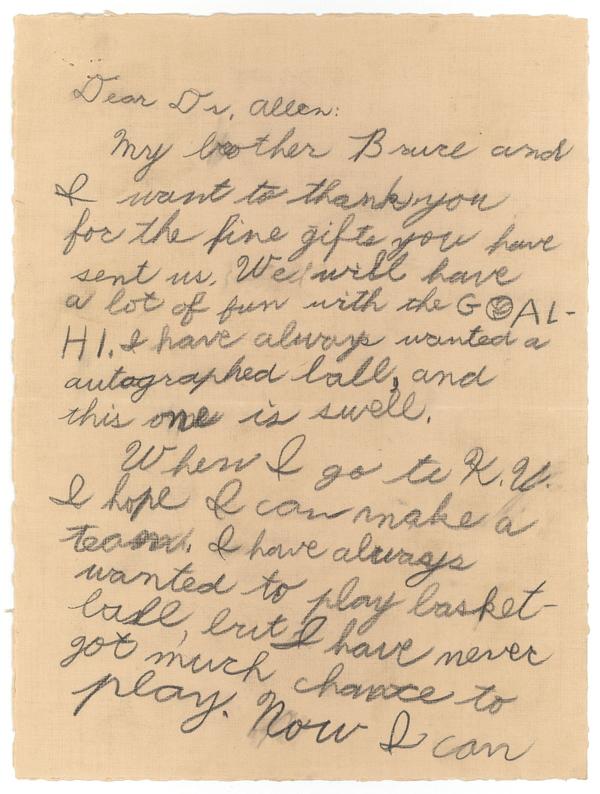 Dear Dr. Allen:
My brother Bruce and
I want to thank you
for the fine gifts you have
sent us. We will have
a lot of fun with the GOAL-
HI. I have always wanted a
autographed ball, and
this one is swell.
When I go to K.U.
I hope I can make a
team. I have always
wanted to play basket-
ball, but I have never
got much chance to
play. Now I can